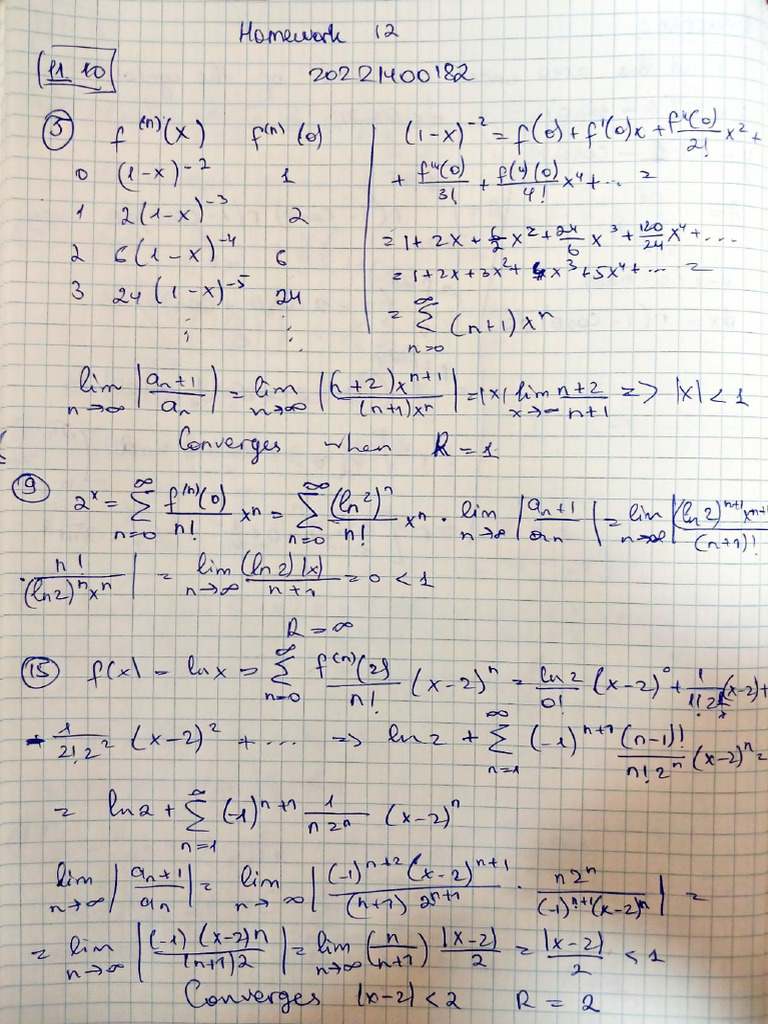 Homework 12
11.10
20221400182
(5) f^(n)(x) f^(n)(0)
0 (1-x)^-2 1
1 2(1-x)^-3 2
2 6(1-x)^-4 6
3 24(1-x)^-5 24
⋮ ⋮
(1-x)^-2 = f(0) + f'(0)x + f''(0)/2! x^2 +
+ f'''(0)/3! + f^(4)(0)/4! x^4 + ... =
= 1 + 2x + 6/2 x^2 + 24/6 x^3 + 120/24 x^4 + ...
= 1 + 2x + 3x^2 + 4x^3 + 5x^4 + ... =
= ∑_{n=0}^{∞} (n+1)x^n
lim_{n→∞} |a_n+1/a_n| = lim_{n→∞} |(n+2)x^{n+1}/(n+1)x^n| = |x| lim_{x→∞} n+2/n+1 => |x| < 1
Converges when R = 1
(9) 2^x = ∑_{n=0}^{∞} f^(n)(0)/n! x^n = ∑_{n=0}^{∞} (ln2)^n/n! x^n . lim_{n→∞} |a_n+1/a_n| = lim_{n→∞} |(ln2)^{n+1} x^{n+1}/(n+1)!
· n!/(ln2)^n x^n | = lim_{n→∞} (ln2)|x|/n+1 = 0 < 1
R = ∞
(15) f(x) = lnx = ∑_{n=0}^{∞} f^(n)(2)/n! (x-2)^n = ln2/0! (x-2)^0 + 1/1!2^1 (x-2) +
- 1/2!2^2 (x-2)^2 + ... => ln2 + ∑_{n=1}^{∞} (-1)^{n+1} (n-1)!/n!2^n (x-2)^n =
= ln2 + ∑_{n=1}^{∞} (-1)^{n+1} 1/n2^n (x-2)^n
lim_{n→∞} |a_n+1/a_n| = lim_{n→∞} |(-1)^{n+2} (x-2)^{n+1}/(n+1) 2^{n+1} · n2^n/(-1)^{n+1}(x-2)^n| =
= lim_{n→∞} |(-1)(x-2)n/(n+1)2| = lim_{n→∞} (n/n+1) |x-2|/2 = |x-2|/2 < 1
Converges |x-2| < 2 R = 2